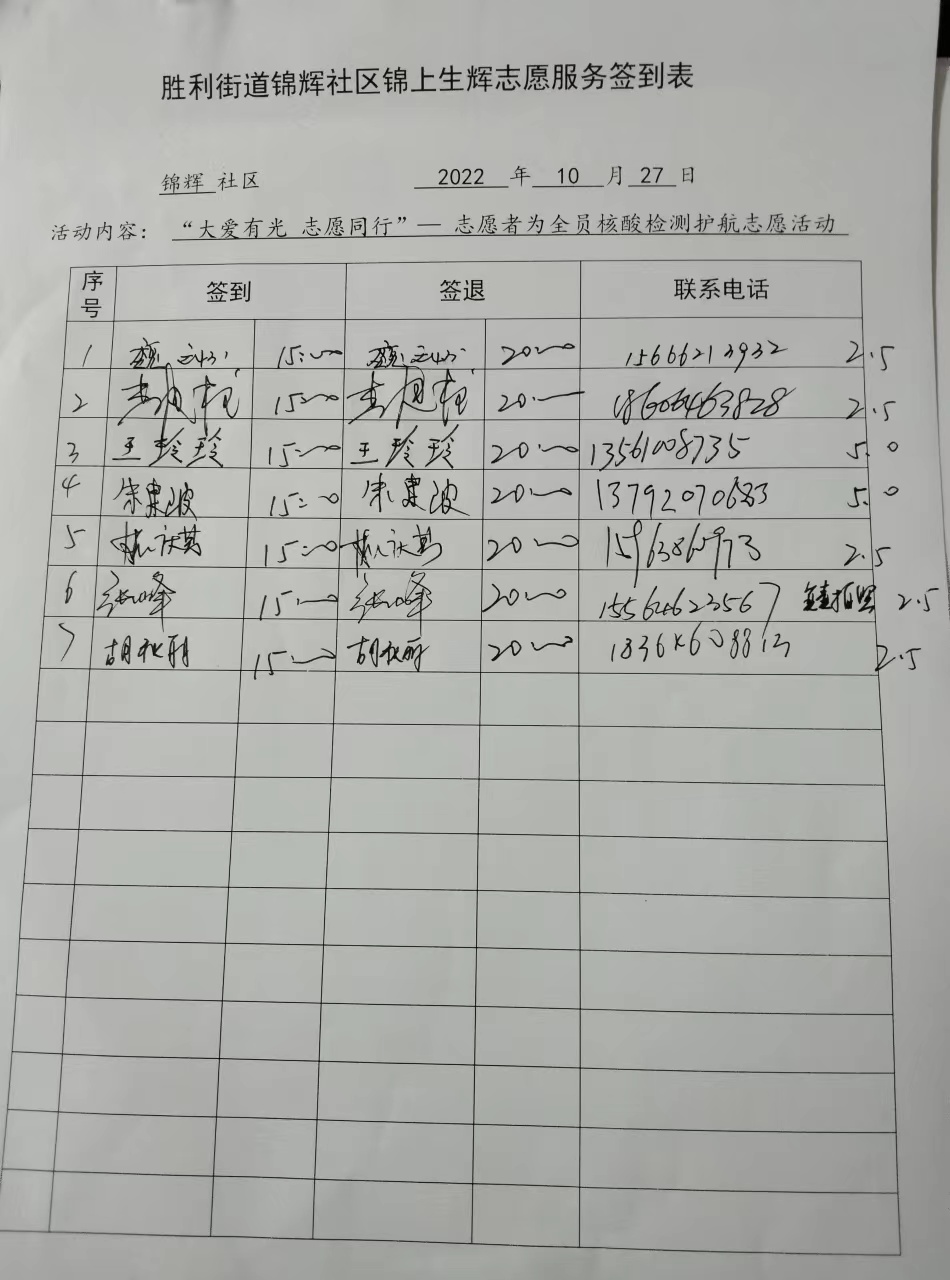 胜利街道锦辉社区锦上生辉志愿服务签到表
锦辉 社区 2022 年 10 月 27 日
活动内容: “大爱有光 志愿同行”— 志愿者为全员核酸检测护航志愿活动
序号 签到 签退 联系电话
1 15:00 20:00 15666213932 2.5
2 15:00 20:00 18606463828 2.5
3 王玲玲 15:00 王玲玲 20:00 13561008735 5.0
4 15:00 20:00 5.0
5 15:00 20:00 2.5
6 张峰 15:00 张峰 20:00 15564623567 2.5
7 胡秋丽 15:00 胡秋丽 20:00 2.5